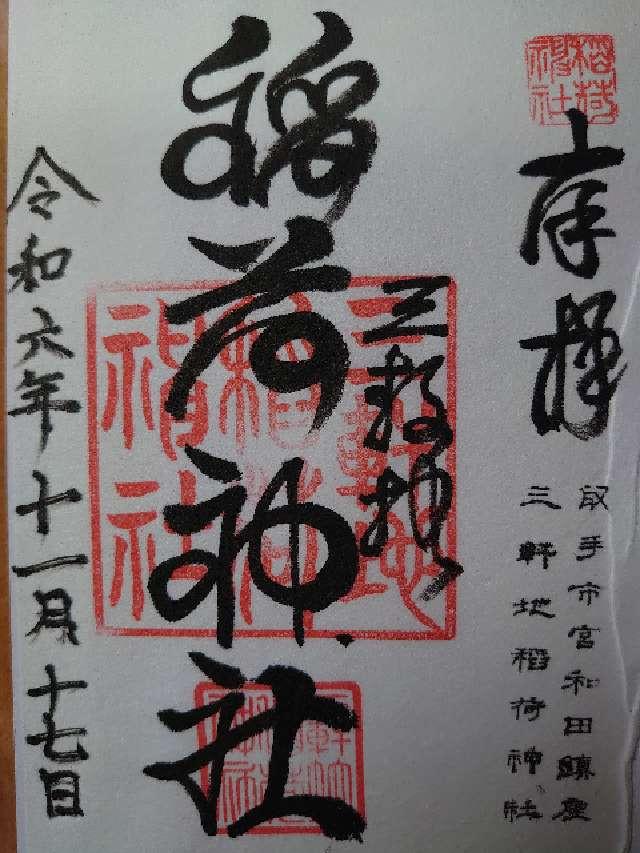 奉拝
取手市宮和田鎮座
三軒地稲荷神社
三軒地
稲荷神社
令和六年十一月十七日
稲荷神社
三軒地稲荷神社